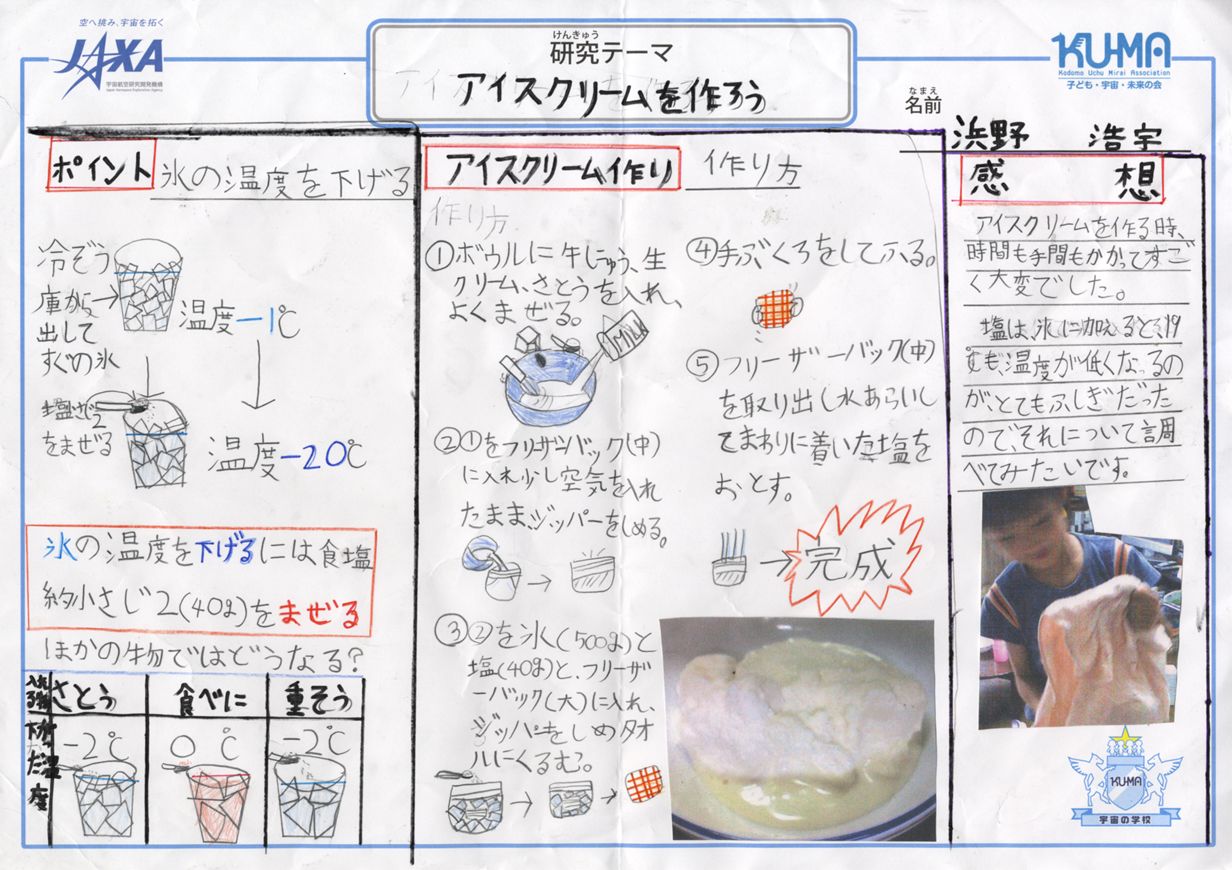 空へ挑み、宇宙を拓く
JAXA
宇宙航空研究開発機構
Japan Aerospace Exploration Agency
けんきゅう
研究テーマ
アイスクリームを作ろう
KU-MA
Kodomo Uchu Mirai Association
子ども・宇宙・未来の会
なまえ
名前
浜野 浩宇
ポイント 氷の温度を下げる
冷ぞう
庫から→
出して
すぐの氷
温度-1℃
塩さじ2
をまぜる
温度-20℃
氷の温度を下げるには食塩
約小さじ2(40g)をまぜる
ほかの物ではどうなる?
入れる物 さとう 食べに 重そう
下がった温度 -2℃ 0℃ -2℃
アイスクリーム作り 作り方
作り方
①ボウルに牛にゅう、生
クリーム、さとうを入れ、
よくまぜる。
MILK
②①をフリーザーバック(中)
に入れ少し空気を入れ
たままジッパーをしめる。
③②を氷(500g)と
塩(40g)と、フリーザ
ーバック(大)に入れ、
ジッパーをしめタオ
ルにくるむ。
④手ぶくろをしてふる。
⑤フリーザーバック(中)
を取り出し水あらいし
てまわりに着いた塩を
おとす。
→完成
感想
アイスクリームを作る時、
時間も手間もかかってすご
く大変でした。
塩は、氷に加えると、
とても温度が低くなるの
が、とてもふしぎだった
のでそれについて調
べてみたいです。
KU-MA
宇宙の学校